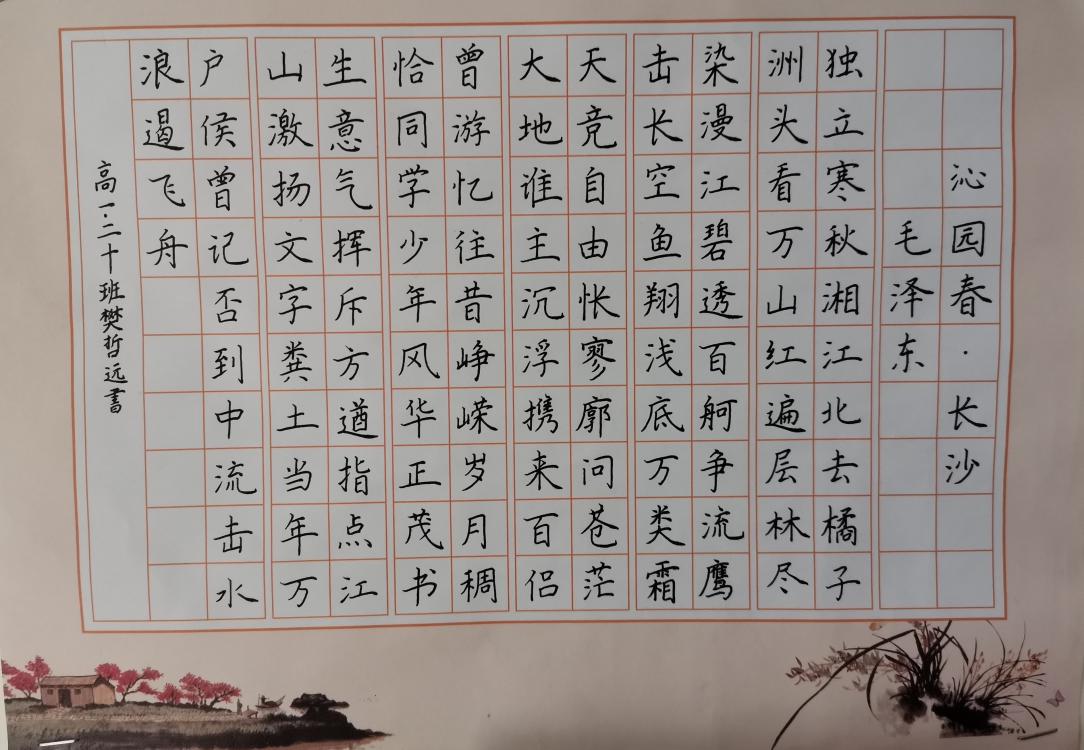 沁园春·长沙
毛泽东
独立寒秋湘江北去橘子
洲头看万山红遍层林尽
染漫江碧透百舸争流鹰
击长空鱼翔浅底万类霜
天竞自由怅寥廓问苍茫
大地谁主沉浮携来百侣
曾游忆往昔峥嵘岁月稠
恰同学少年风华正茂书
生意气挥斥方遒指点江
山激扬文字粪土当年万
户侯曾记否到中流击水
浪遏飞舟
高一·二十班樊哲远书